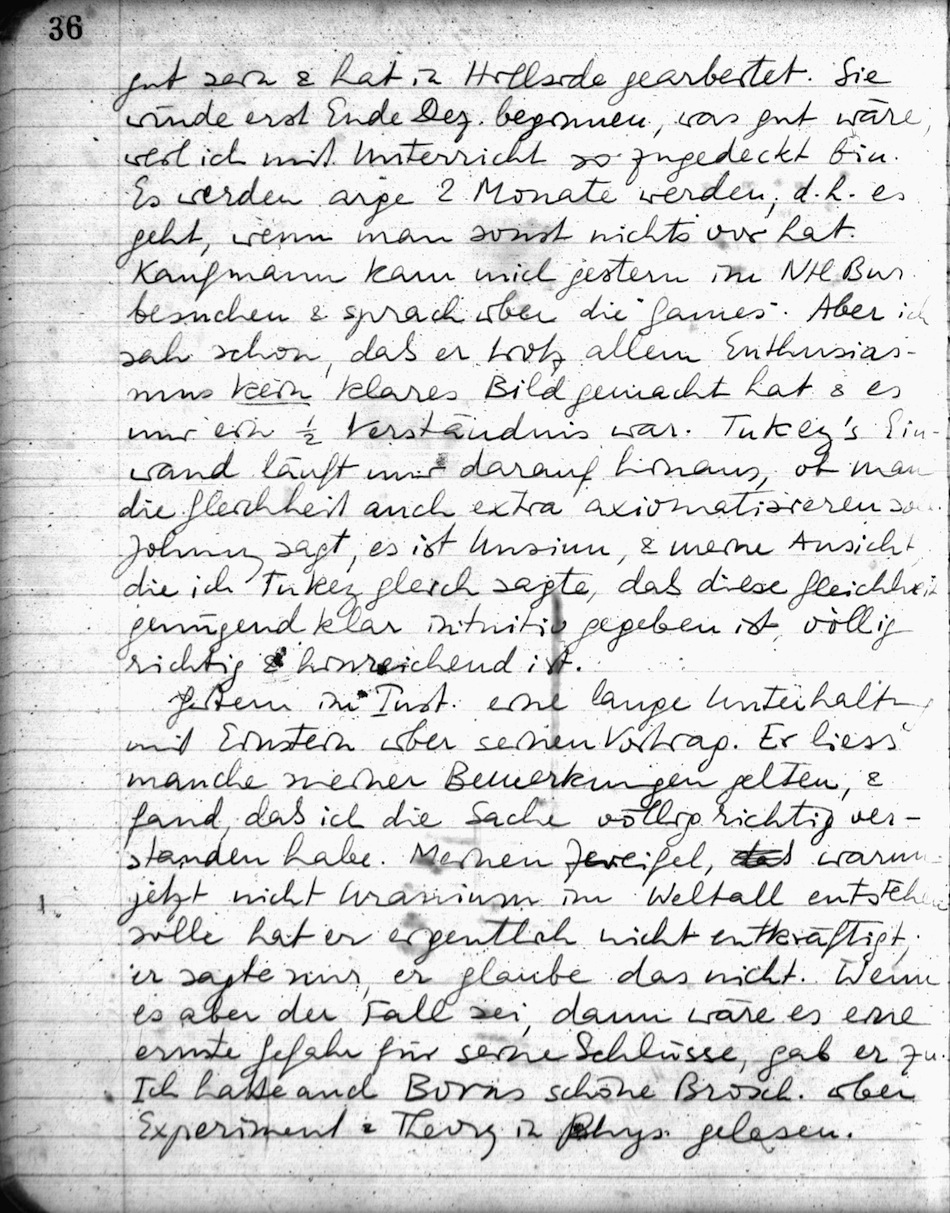 36
gut sein & hat in Hillside gearbeitet. Sie
würde erst Ende Dez. beginnen, was gut wäre,
weil ich mit Unterricht so zugedeckt bin.
Es werden arge 2 Monate werden, d.h. es
geht, wenn man sonst nichts vor hat.
Kaufmann kam mich gestern im NH Bur
besuchen & sprach über die "Games". Aber ich
sah schon, daß er trotz allem Enthusias-
mus kein klares Bild gemacht hat & es
nur ein ½ Verständnis war. Tukey's Ein-
wand läuft nur darauf hinaus, ob man
die Gleichheit auch extra axiomatisieren
Johnny sagt, es ist Unsinn, & meine Ansicht,
die ich Tukey gleich sagte, daß diese Gleichheit
genügend klar intuitiv gegeben ist, völlig
richtig & hinreichend ist.
Gestern im Inst. eine lange Unterhaltung
mit Einstein über seinen Vortrag. Er liess
manche meiner Bemerkungen gelten, &
fand, daß ich die Sache völlig richtig ver-
standen habe. Meinen Zweifel, warum
jetzt nicht Uranium im Weltall entstehen
solle hat er eigentlich nicht entkräftigt,
er sagte nur, er glaube das nicht. Wenn
es aber der Fall sei, dann wäre es eine
ernste Gefahr für seine Schlüsse, gab er zu.
Ich hatte auch Borns schöne Brosch. über
Experiment & Theory in Phys. gelesen.